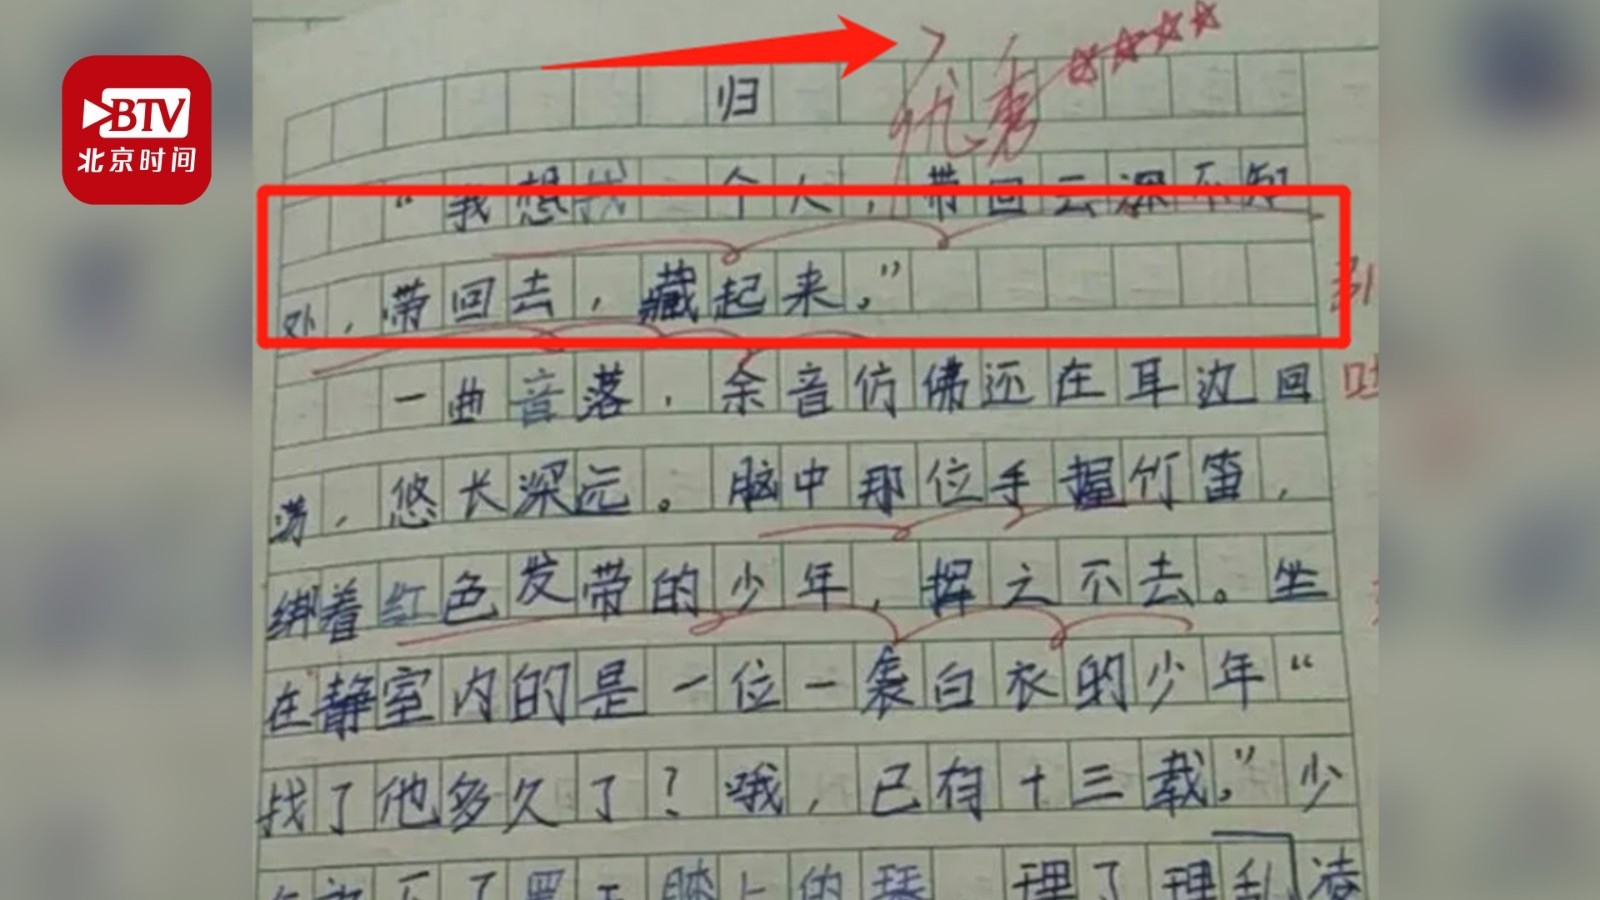 BTV
北京时间
优秀☆☆☆☆
归
“我想找一个人，带回云深不知
处，带回去，藏起来。”
一曲音落，余音仿佛还在耳边回
荡，悠长深远。脑中那位手握竹笛，
绑着红色发带的少年，挥之不去。坐
在静室内的是一位一袭白衣的少年“
找了他多久了？哦，已有十三载。”少
膝上的琴 理了理乱凌